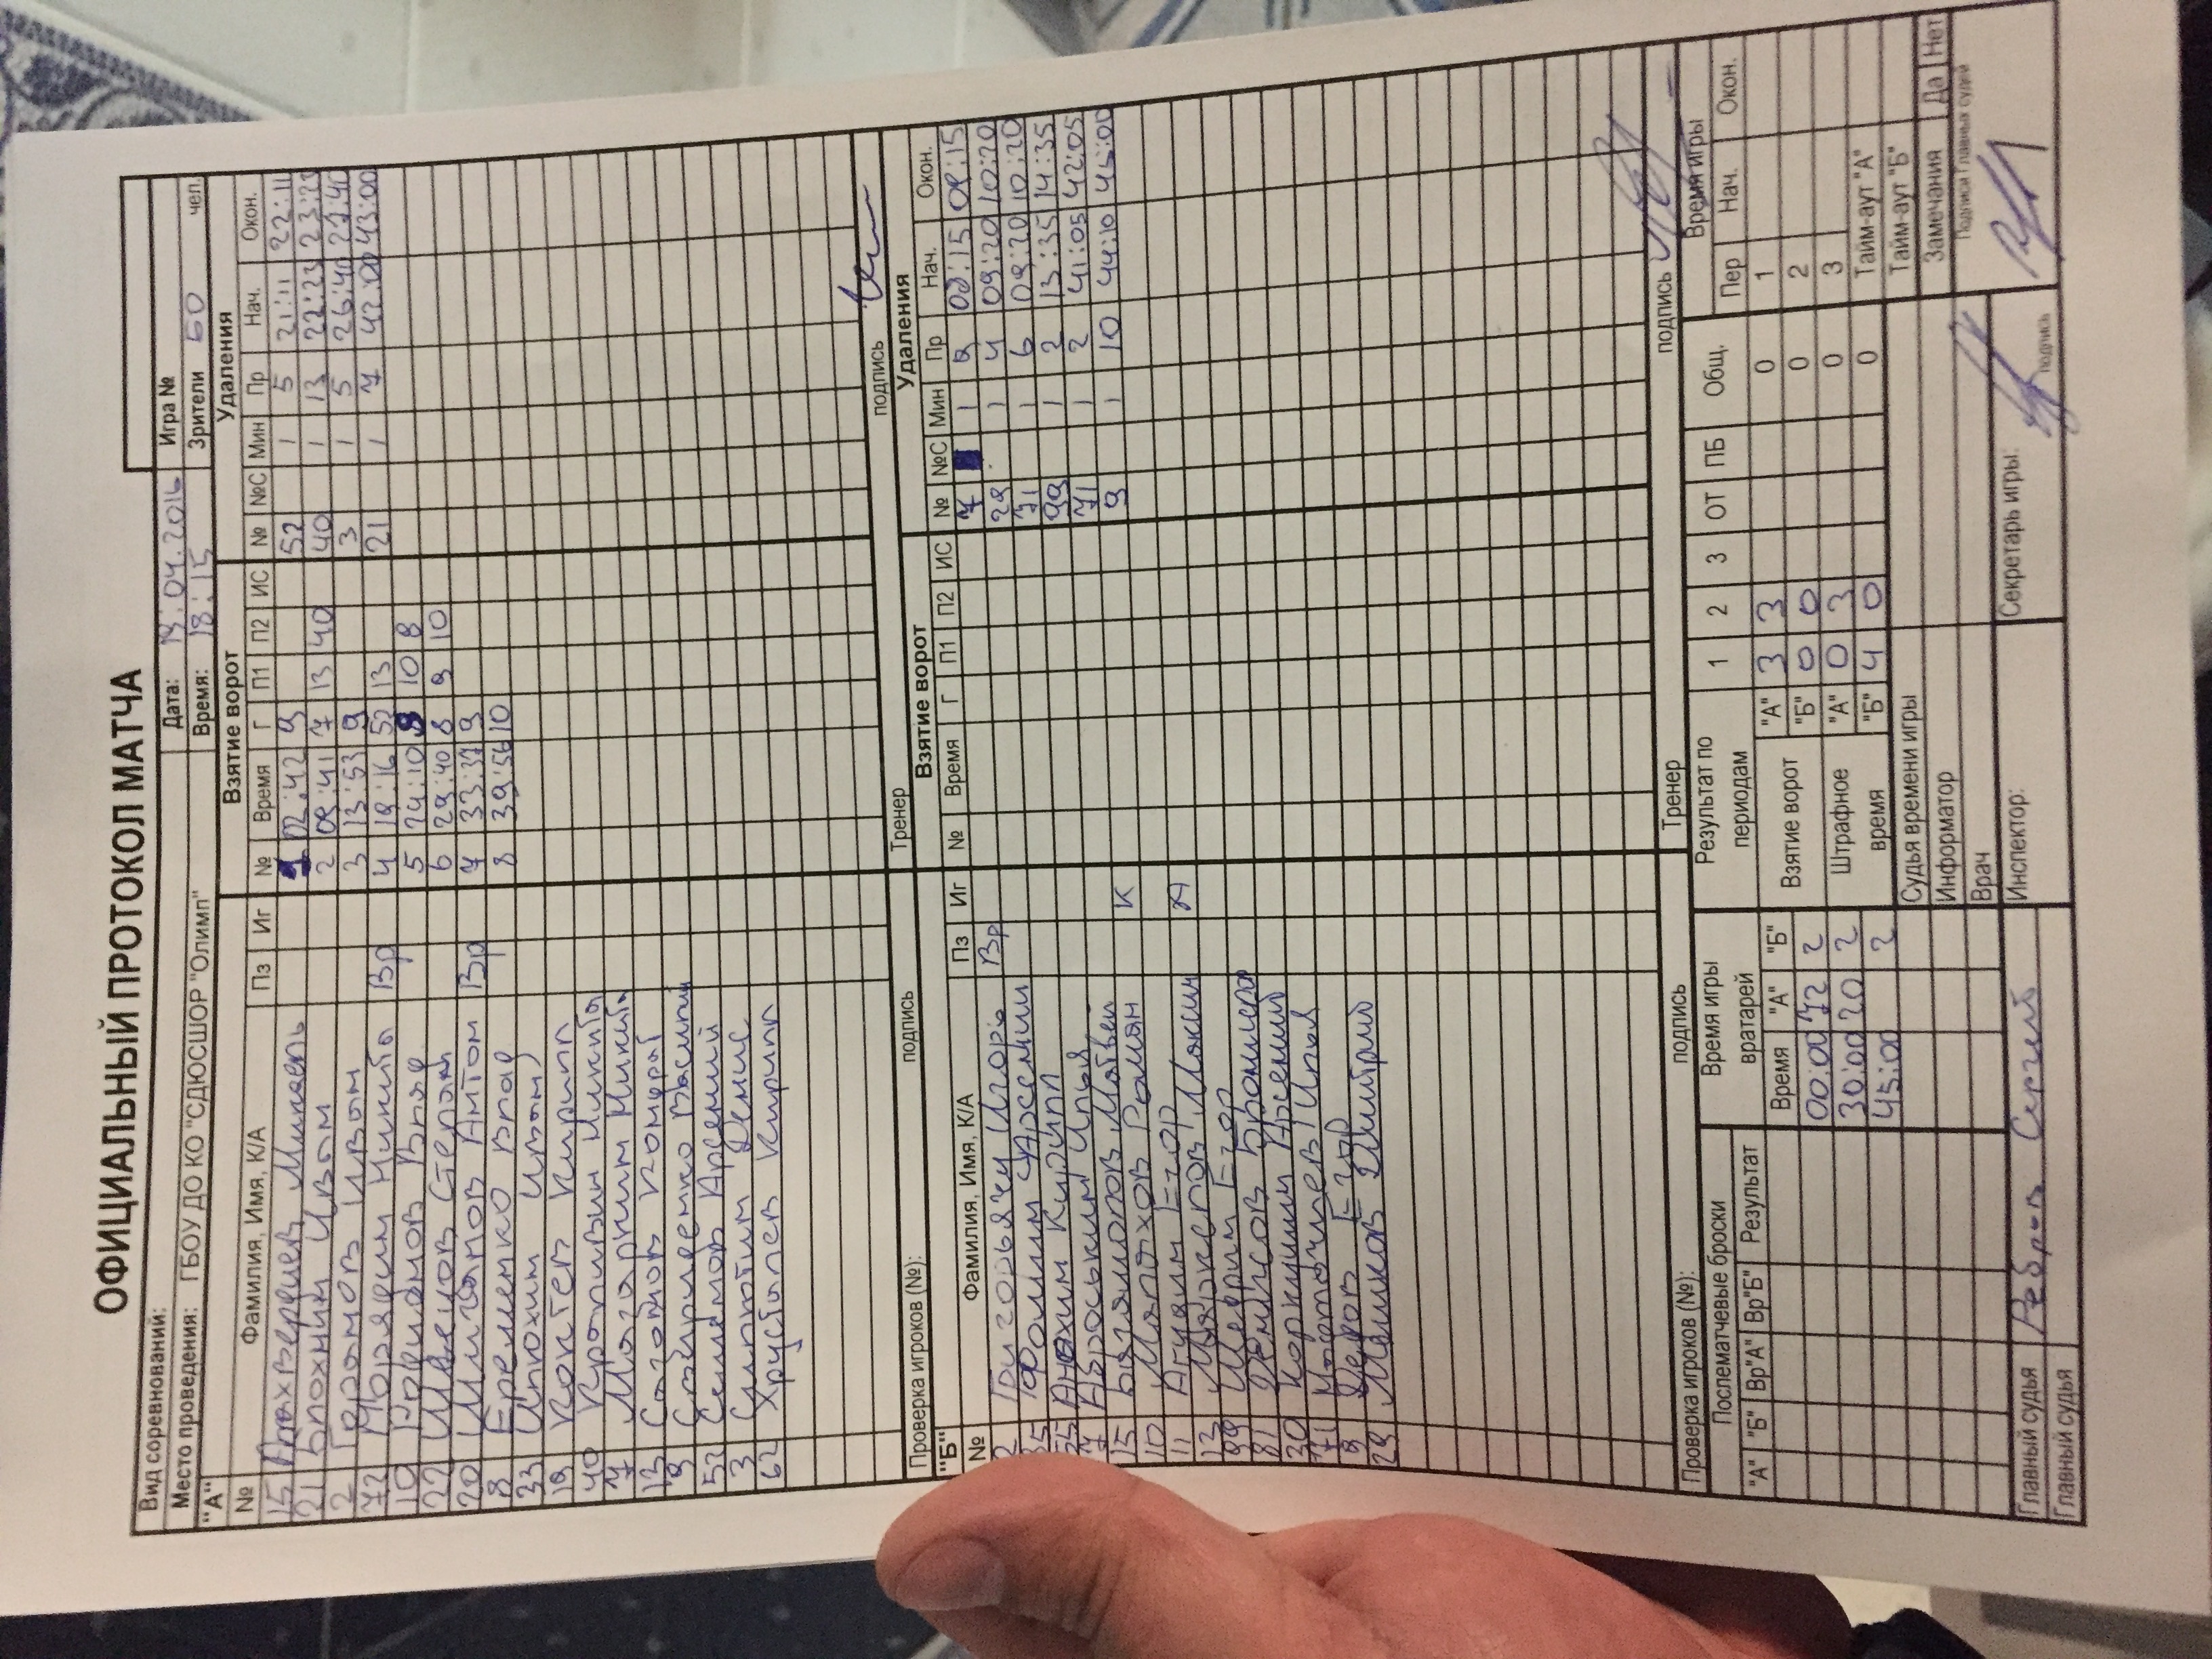 ОФИЦИАЛЬНЫЙ ПРОТОКОЛ МАТЧА
Вид соревнований: Дата: 19.04.2016 Игра №
Место проведения: ГБОУ ДО КО "СДЮСШОР "Олимп" Время: 18:15 Зрители 60 чел.
"А" Взятие ворот Удаления
№ Фамилия, Имя, К/А Пз Иг № Время Г П1 П2 ИС № №С Мин Пр Нач. Окон.
15 Михаель 1 02:42 9 52 1 5 21:11 22:11
21 Блохнин Иван 2 08:41 7 13 40 40 1 13 22:23
2 Громов Иван 3 13:53 9 3 1 5 26:40 27:40
72 Никита Вр 4 19:16 52 13 21 1 7 42:00 43:00
10 Влад 5 24:10 9 10 8
22 Швецов Степан 6 29:40 8 9 10
20 Антон Вр 7 33:37 9
8 Еременко Влад 8 39:56 10
33 Илюхин Иван
19 Коктев Кирилл
40 Кропивин Никита
7 Могаркин Никита
13 Солодов
9 Василий
52 Семенов Арсений
3 Сиротин Денис
62 Хрусталев Кирилл
Проверка игроков (№): подпись Тренер подпись
"Б" Взятие ворот Удаления
№ Фамилия, Имя, К/А Пз Иг № Время Г П1 П2 ИС № №С Мин Пр Нач. Окон.
2 Игорь Вр 7 1 9 08:15 09:15
35 Фролин Арсений 29 1 4 09:20 10:20
25 Анохин Кирилл 71 1 6 09:20 10:20
7 Аброськин Илья 99 1 2 13:35 14:35
15 Матвей К 71 1 2 41:05 42:05
10 Малохов Роман 9 1 10 44:10 45:00
11 Егор А
13 Маркелов Максим
99 Шверин Егор
81 Денисов Бронислав
30 Коркишин Арсений
71 Илья
9 Егор
29 Мешков Дмитрий
Проверка игроков (№): подпись Тренер подпись
Послематчевые броски Время игры вратарей Результат по периодам 1 2 3 ОТ ПБ Общ. Время игры
"А" "Б" Вр"А" Вр"Б" Результат Время "А" "Б" Пер Нач. Окон.
00:00 72 2 Взятие ворот "А" 3 3 0 1
30:00 20 2 "Б" 0 0 0 2
45:00 2 Штрафное время "А" 0 3 0 3
"Б" 4 0 0 Тайм-аут "А"
Судья времени игры Тайм-аут "Б"
Информатор Замечания Да Нет
Врач Подписи Главных судей
Главный судья Ребров Сергей Инспектор: Секретарь игры: подпись
Главный судья